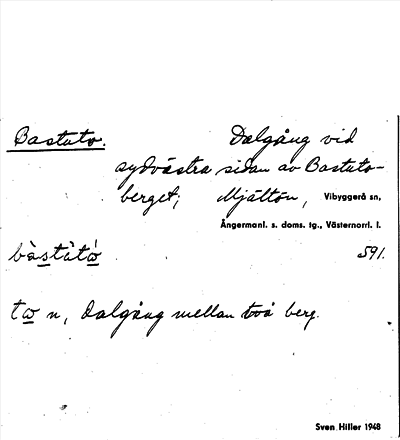 Bastuto. Dalgång vid
sydvästra sidan av Bastuto-
berget; Mjältön, Vibyggerå sn,
Ångermanl. s. doms. tg., Västernorrl. l.
bàstàtὼ 591.
tω n, dalgång mellan två berg.
Sven Hiller 1948